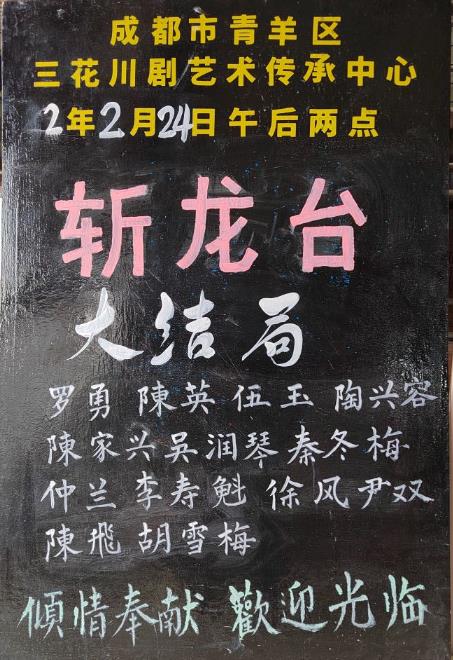 成都市青羊区
三花川剧艺术传承中心
2年2月24日午后两点
斩龙台
大结局
罗勇 陳英 伍玉 陶兴容
陳家兴 吳润琴 秦冬梅
仲兰 李寿魁 徐风 尹双
陳飛 胡雪梅
傾情奉献 歡迎光临